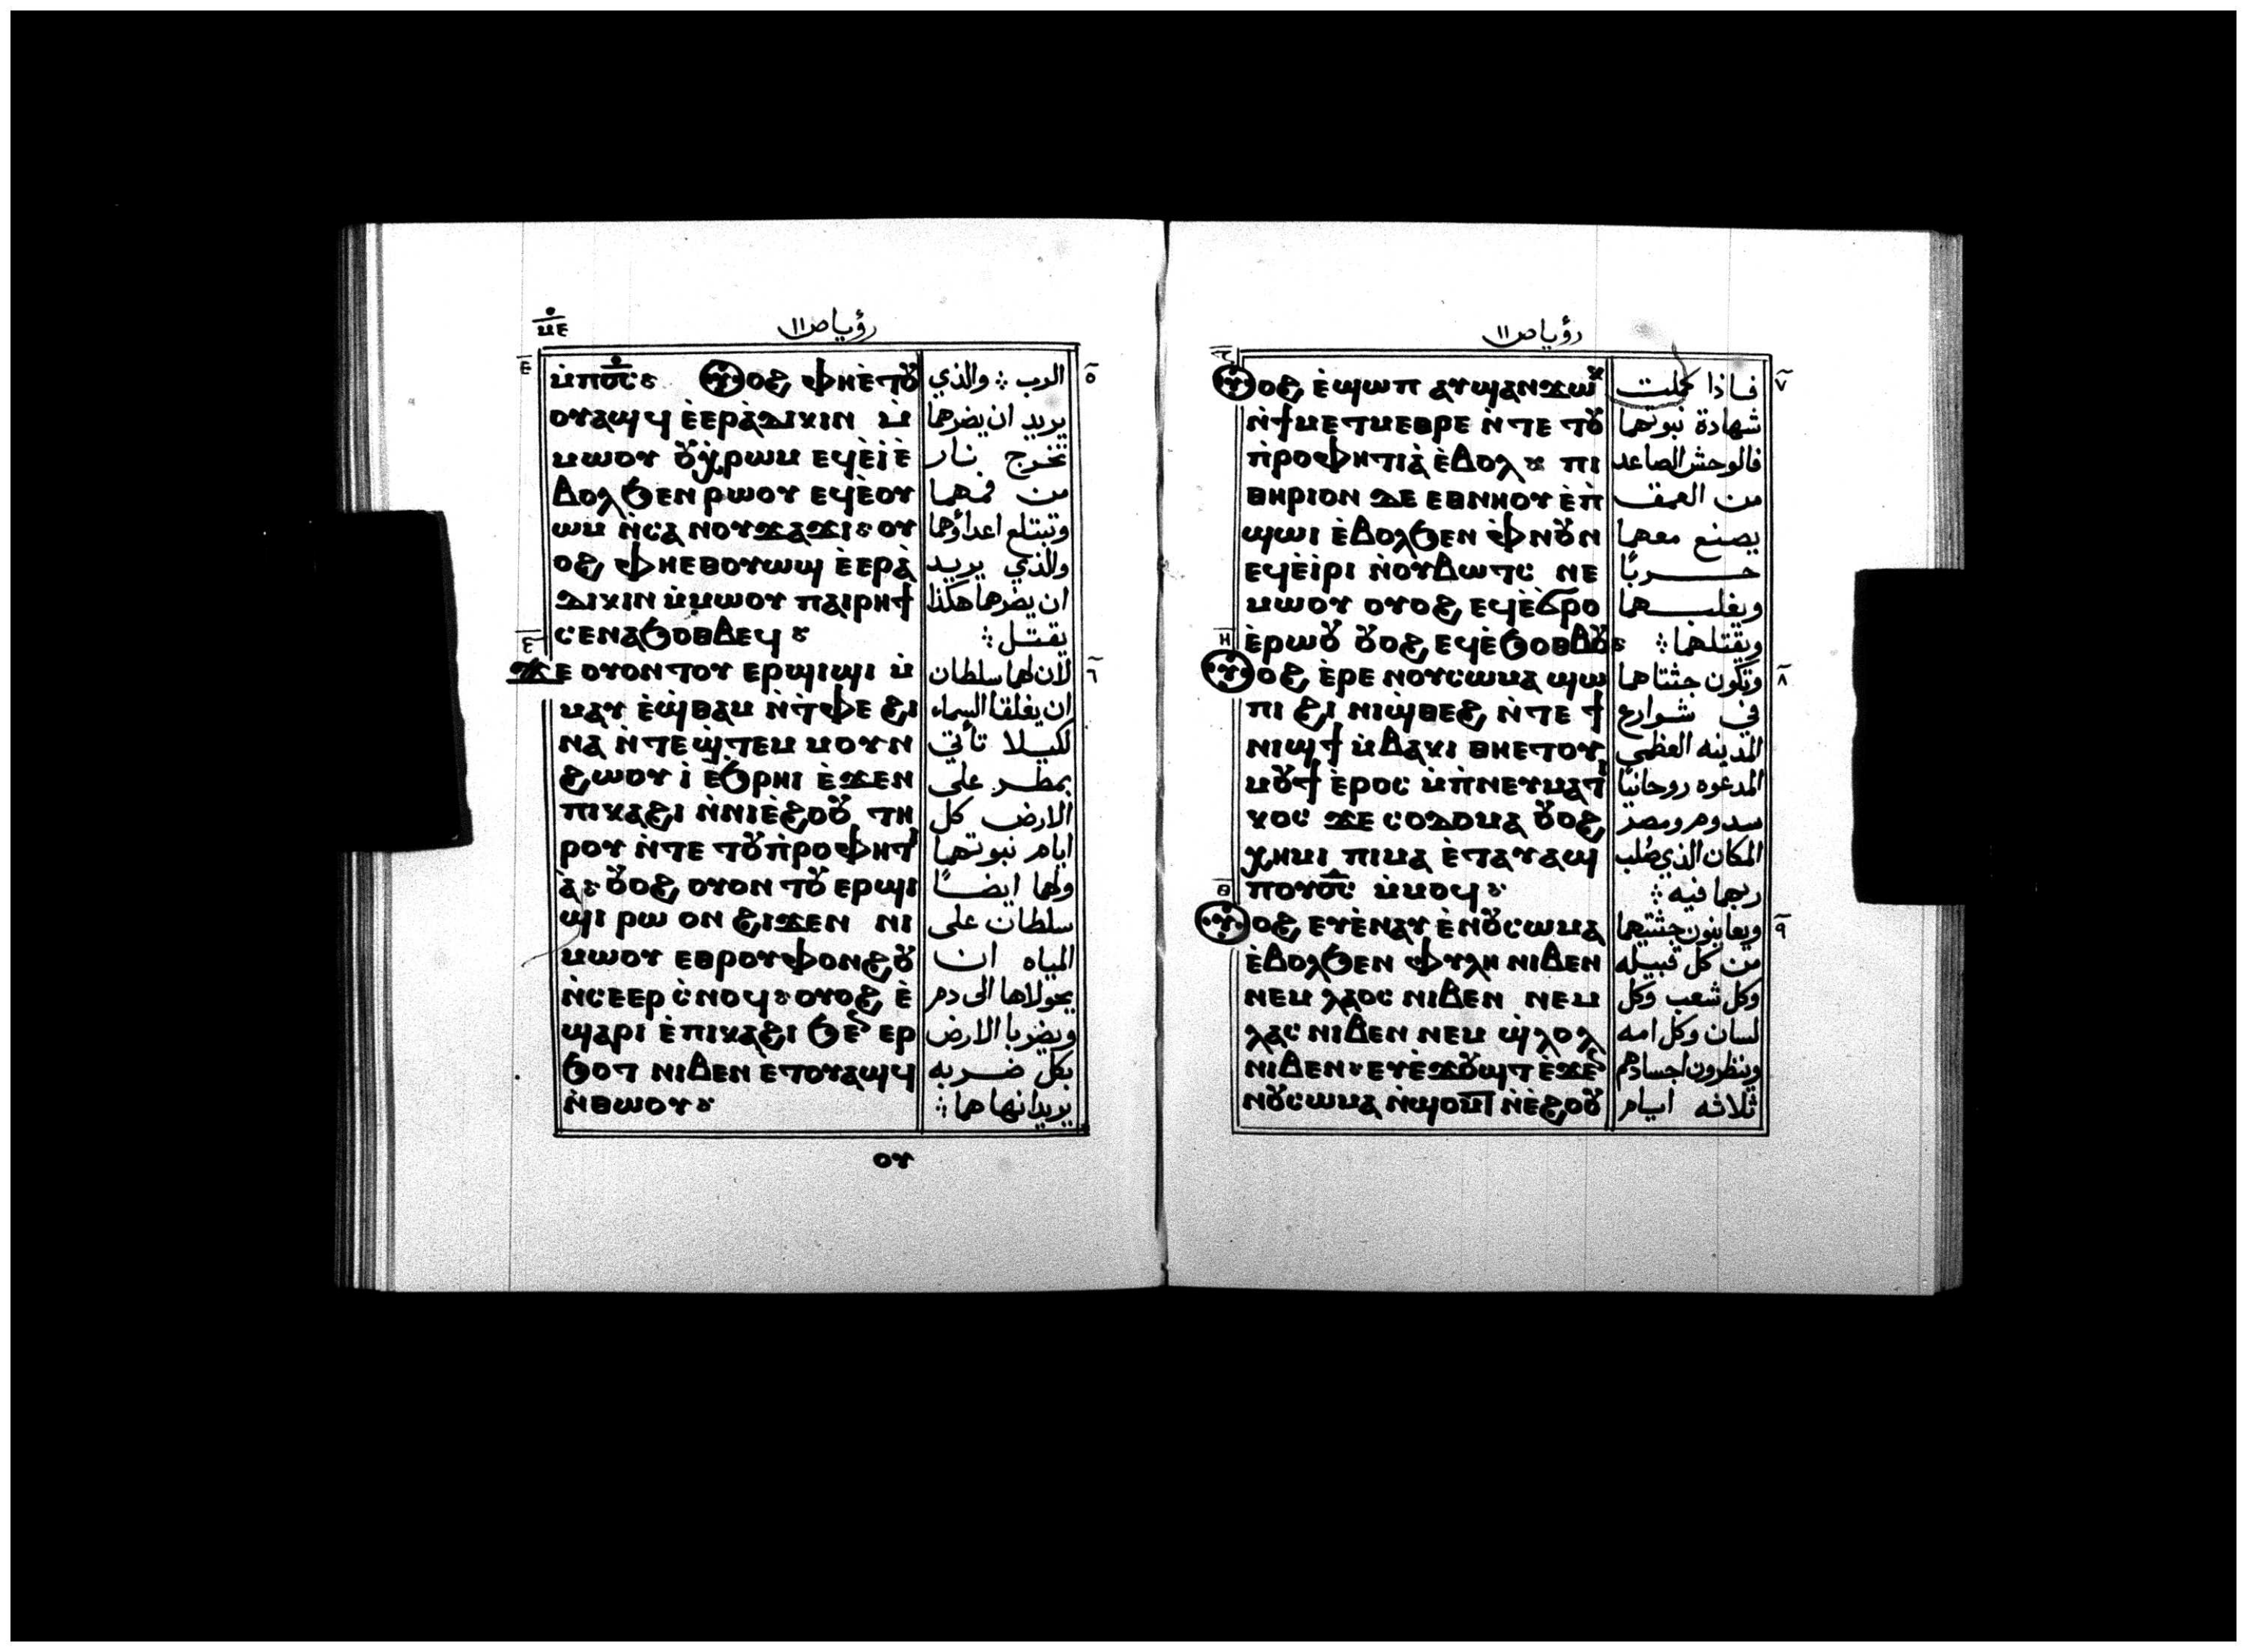 ⲛⲉ
رؤيا ص ١١
ⲉ
ⲙ̀ⲡⲟ̅ⲥ̅: ⲟⲩⲟϩ ⲫⲏⲉ̀ⲧⲟⲩ
ⲟⲩⲁϣϥ ⲉ̀ⲉⲣⲁ̀ⲇⲓⲕⲓⲛ ⲙ̀
ⲙⲱⲟⲩ ⲟⲩⲭ̀ⲣⲱⲙ ⲉϥⲉ̀ⲓ̀ⲉ̀
ⲃⲟⲗϧⲉⲛ ⲣⲱⲟⲩ ⲉϥⲉ̀ⲟⲩ
ⲱⲙ ⲛ̀ⲥⲁ ⲛⲟⲩϫⲁϫⲓ: ⲟⲩ
ⲟϩ ⲫⲏⲉⲑⲟⲩⲱϣ ⲉ̀ⲉⲣⲁ̀
ⲇⲓⲕⲓⲛ ⲙ̀ⲙⲱⲟⲩ ⲡⲁⲓⲣⲏϯ
ⲥⲉⲛⲁϧⲟⲑⲃⲉϥ:
ϫⲉ ⲟⲩⲟⲛⲧⲟⲩ ⲉⲣϣⲓϣⲓ ⲙ̀
ⲙⲁⲩ ⲉ̀ϣ̀ⲑⲁⲙ ⲛ̀ⲧ̀ⲫⲉ ϩⲓ
ⲛⲁ ⲛ̀ⲧⲉϣ̀ⲧⲉⲙ ⲙⲟⲩⲛ
ϩⲱⲟⲩ ⲓ̀ ⲉ̀ϧ̀ⲣⲏⲓ ⲉ̀ϫⲉⲛ
ⲡⲓⲕⲁϩⲓ ⲛ̀ⲛⲓⲉ̀ϩⲟⲟⲩ ⲧⲏ
ⲣⲟⲩ ⲛ̀ⲧⲉ ⲧⲟⲩⲡ̀ⲣⲟⲫⲏⲧⲓ
ⲁ̀: ⲟⲩⲟϩ ⲟⲩⲟⲛ ⲧⲟⲩ ⲉⲣϣⲓ
ϣⲓ ⲣⲱ ⲟⲛ ϩⲓϫⲉⲛ ⲛⲓ
ⲙⲱⲟⲩ ⲉⲑⲣⲟⲩⲫⲟⲛϩⲟⲩ
ⲛ̀ⲥⲉⲉⲣ ⲥ̀ⲛⲟϥ: ⲟⲩⲟϩ ⲉ̀
ϣⲁⲣⲓ ⲉ̀ⲡⲓⲕⲁϩⲓ ϧⲉⲛ ⲉⲣ
ϧⲟⲧ ⲛⲓⲃⲉⲛ ⲉⲧⲟⲩⲁϣϥ
ⲛ̀ⲑⲱⲟⲩ:
٥
الرب ⁘ والذي
يريد ان يضرهما
تخرج نار
من فمهما
وتبتلع اعداؤهما
والذي يريد
ان يضرهما هكذا
يقتل ⁘
٦
لان لهما سلطان
ان يغلقا السماء
لكيلا تأتي
بمطر على
الارض كل
ايام نبوتهما
ولهما ايضاً
سلطان على
المياه ان
يحولاها الى دم
ويضربا الارض
بكل ضربه
يريدانها هما ⁘
ⲟⲩ
رؤيا ص ١١
ⲟⲩⲟϩ ⲉ̀ϣⲱⲡ ⲁⲩϣⲁⲛϫⲱⲕ
ⲛ̀ϯⲙⲉⲧⲙⲉⲑⲣⲉ ⲛ̀ⲧⲉ ⲧⲟⲩ
ⲡ̀ⲣⲟⲫⲏⲧⲓⲁ̀ ⲉ̀ⲃⲟⲗ: ⲡⲓ
ⲑⲏⲣⲓⲟⲛ ⲇⲉ ⲉⲑⲛⲏⲟⲩ ⲉ̀ⲡ̀
ϣⲱⲓ ⲉ̀ⲃⲟⲗϧⲉⲛ ⲫ̀ⲛⲟⲩⲛ
ⲉϥⲉ̀ⲓ̀ⲣⲓ ⲛ̀ⲟⲩⲃⲱⲧⲥ ⲛⲉ
ⲙⲱⲟⲩ ⲟⲩⲟϩ ⲉϥⲉ̀ϭⲣⲟ
ⲉ̀ⲣⲱⲟⲩ ⲟⲩⲟϩ ⲉϥⲉ̀ϧⲟⲑⲃⲟⲩ:
ⲏ
ⲟⲩⲟϩ ⲉ̀ⲣⲉ ⲛⲟⲩⲥⲱⲙⲁ ϣⲱ
ⲡⲓ ϩⲓ ⲛⲓϣ̀ⲑⲉϩ ⲛ̀ⲧⲉ ϯ
ⲛⲓϣϯ ⲙ̀ⲃⲁⲕⲓ ⲑⲏⲉⲧⲟⲩ
ⲙⲟⲩϯ ⲉ̀ⲣⲟⲥ ⲙ̀ⲡ̀ⲛⲉⲩⲙⲁⲧⲓ
ⲕⲟⲥ ϫⲉ ⲥⲟⲇⲟⲙⲁ ⲟⲩⲟϩ
ⲭⲏⲙⲓ ⲡⲓⲙⲁ ⲉ̀ⲧⲁⲩⲁϣ
ⲡⲟⲩⲟ̅ⲥ̅ ⲙ̀ⲙⲟϥ:
ⲑ
ⲟⲩⲟϩ ⲉⲩⲉ̀ⲛⲁⲩ ⲉ̀ⲛⲟⲩⲥⲱⲙⲁ
ⲉ̀ⲃⲟⲗϧⲉⲛ ⲫⲩⲗⲏ ⲛⲓⲃⲉⲛ
ⲛⲉⲙ ⲗⲁⲟⲥ ⲛⲓⲃⲉⲛ ⲛⲉⲙ
ⲗⲁⲥ ⲛⲓⲃⲉⲛ ⲛⲉⲙ ϣ̀ⲗⲟⲗ
ⲛⲓⲃⲉⲛ: ⲉⲩⲉ̀ϫⲟⲩϣⲧ ⲉ̀ϫⲉⲛ
ⲛⲟⲩⲥⲱⲙⲁ ⲛ̀ϣⲟⲙϯ ⲛ̀ⲉ̀ϩⲟⲟⲩ
٧
فاذا كملت
شهادة نبوتهما
فالوحش الصاعد
من العمق
يصنع معهما
حرباً
ويغلبهما
ويقتلهما ⁘
٨
وتكون جثتاهما
في شوارع
المدينه العظمي
المدعوه روحانياً
سدوم ومصر
المكان الذي صُلب
ربهما فيه ⁘
٩
ويعاينون جثتيهما
من كل قبيله
وكل شعب وكل
لسان وكل امه
وينظرون اجسادهم
ثلاثه ايام